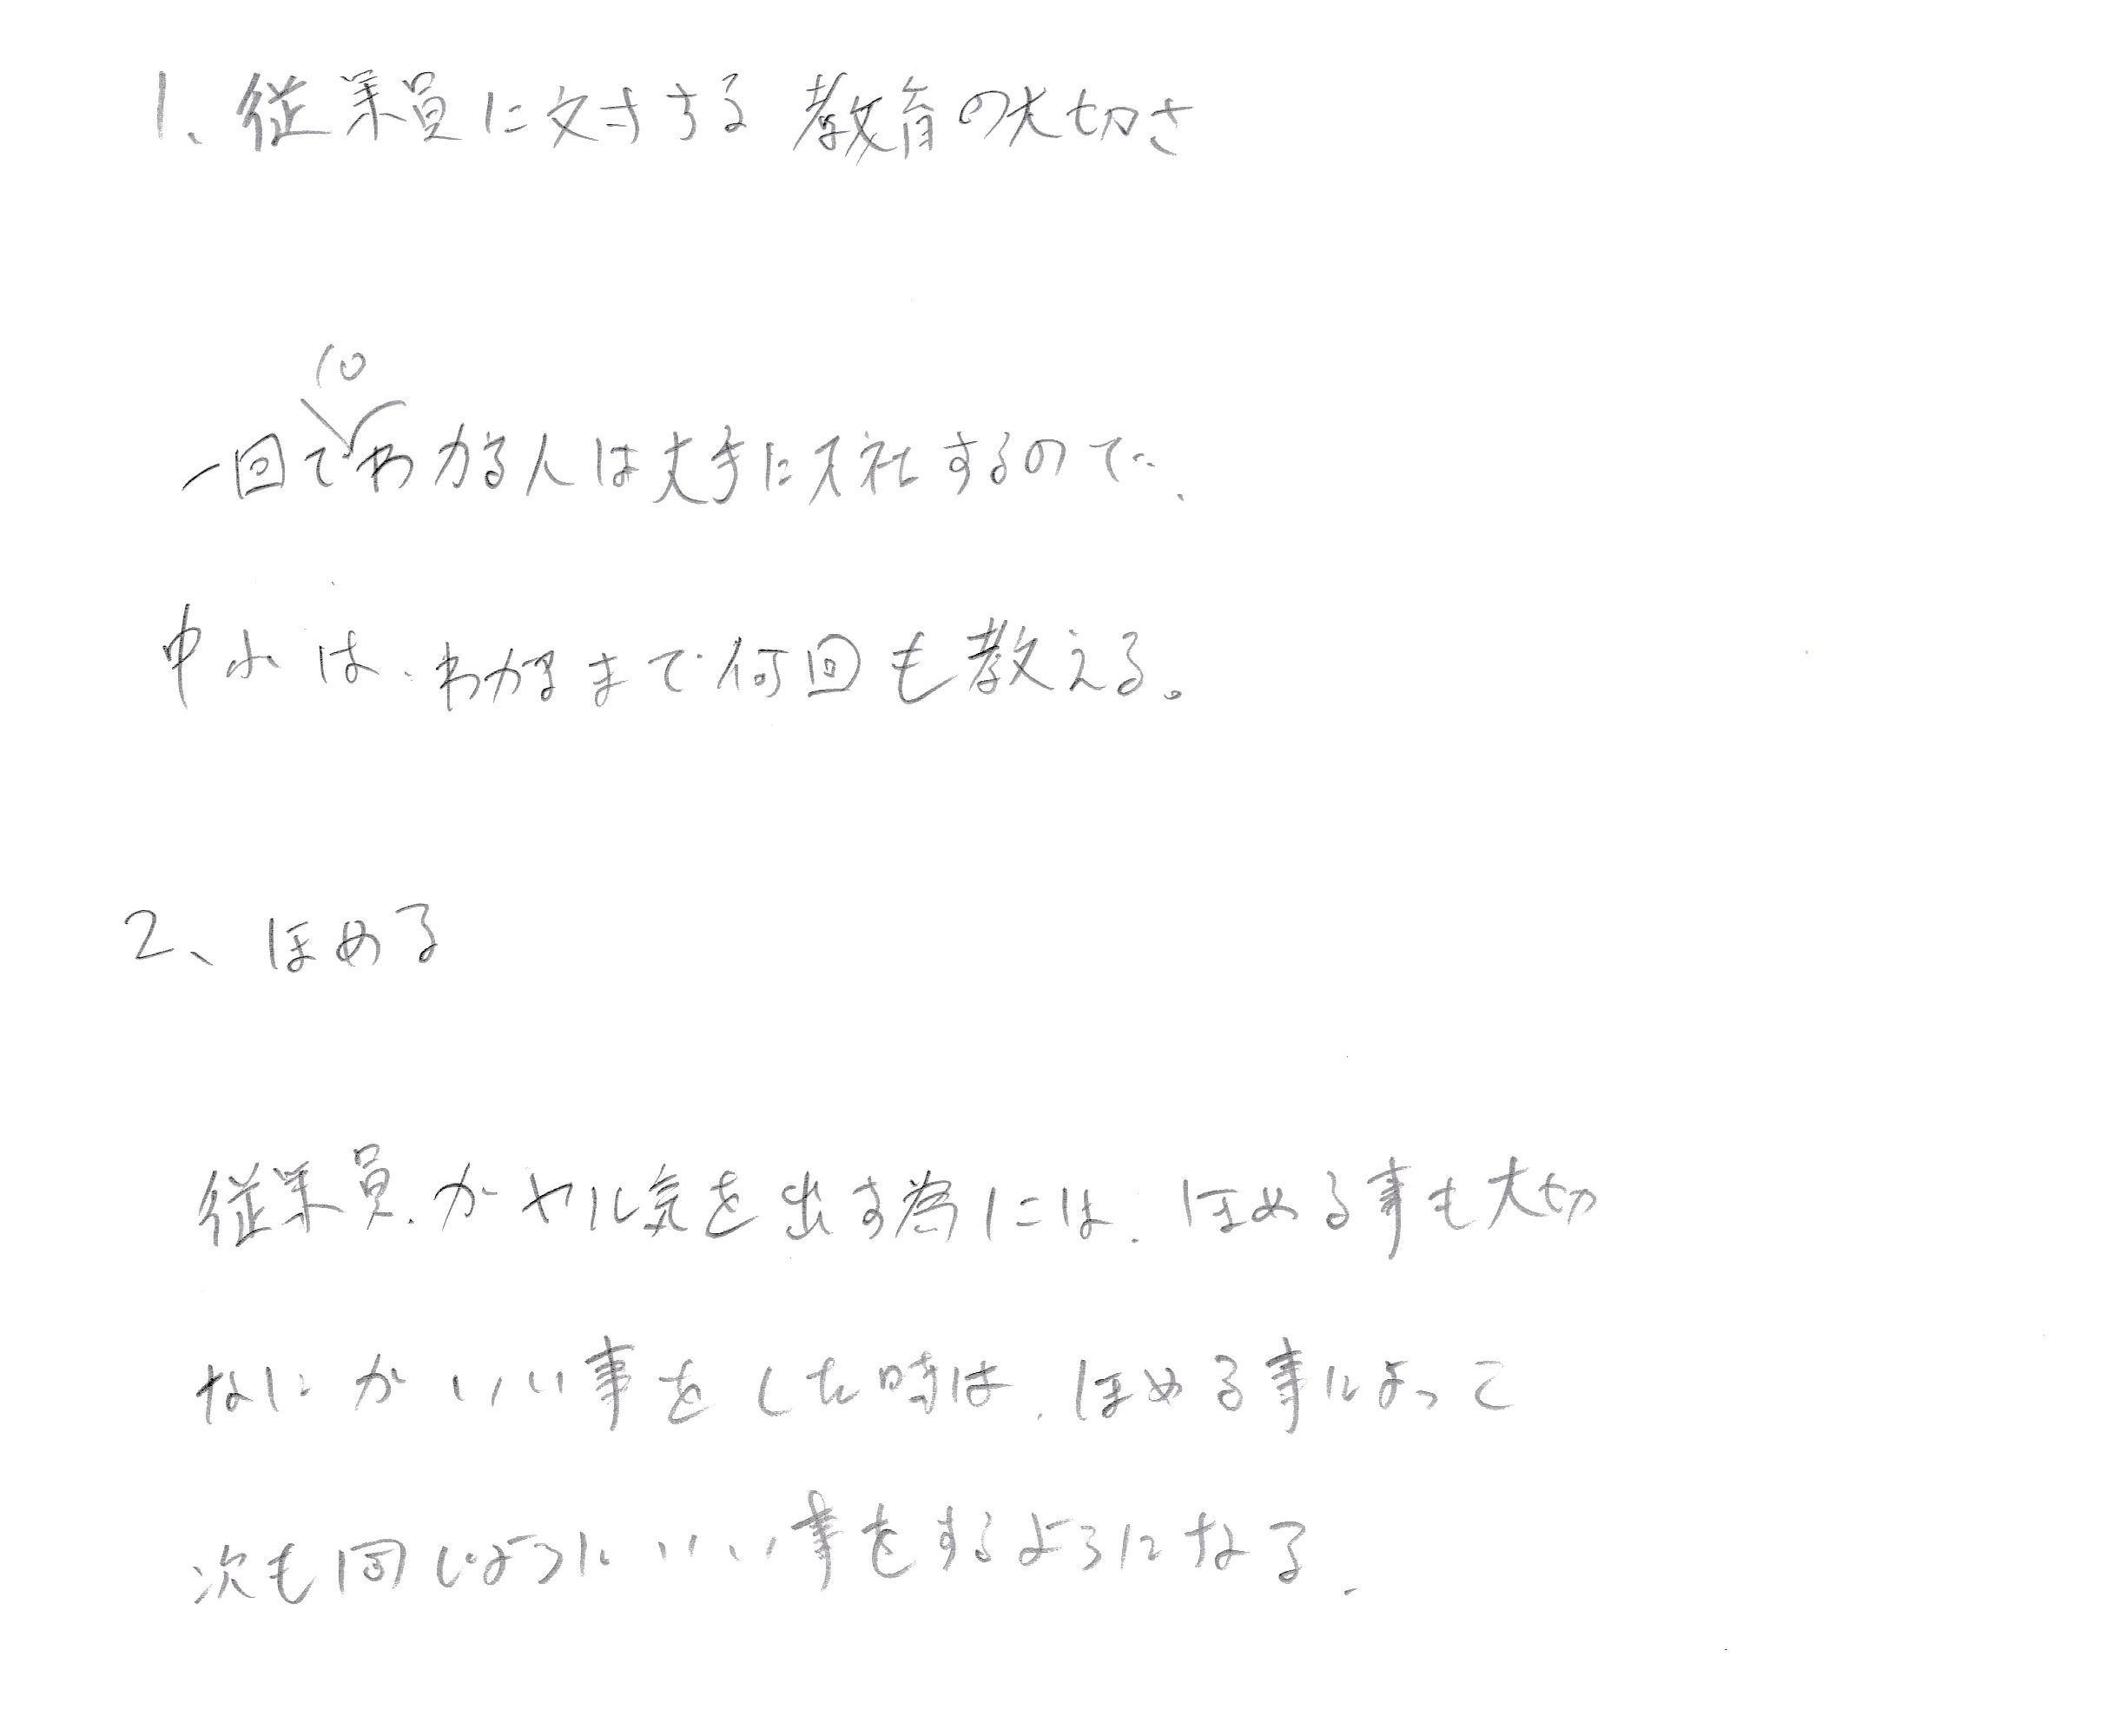 1、従業員に対する教育の大切さ
一回でわかる人は大手に入社するので、
中小は、わかるまで何回も教える。
2、ほめる
従業員がヤル気を出す為には、ほめる事も大切
なにかいい事をした時は、ほめる事によって
次も同じようにいい事をするようになる。